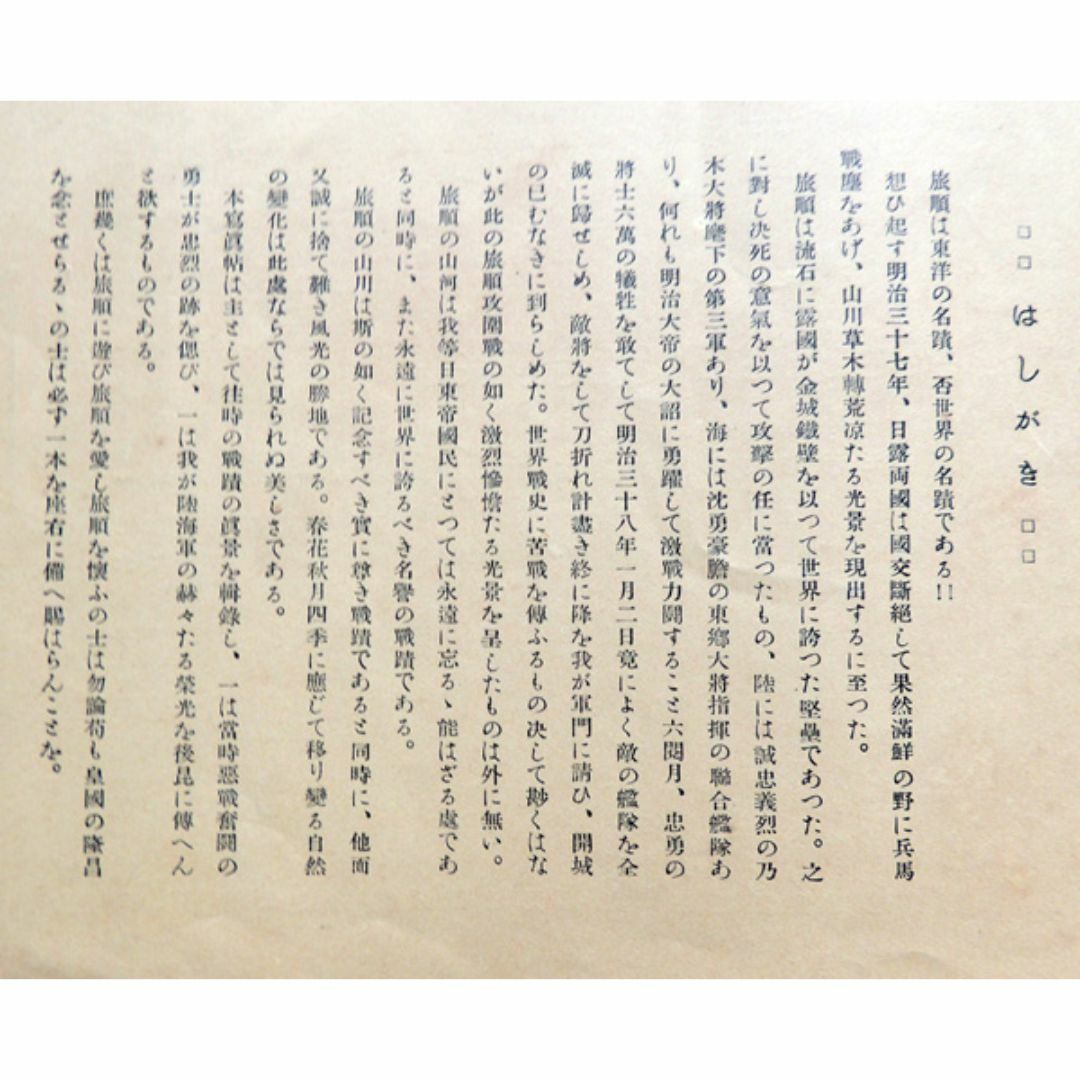 □□はしがき□□
旅順は東洋の名蹟、否世界の名蹟である!!
想ひ起す明治三十七年、日露両國は國交斷絕して果然滿鮮の野に兵馬
戰塵をあげ、山川草木轉荒凉たる光景を現出するに至つた。
旅順は流石に露國が金城鐵壁を以つて世界に誇つた堅壘であつた。之
に對し決死の意氣を以つて攻擊の任に當つたもの、陸には誠忠義烈の乃
木大將麾下の第三軍あり、海には沈勇豪膽の東鄕大將指揮の聯合艦隊あ
り、何れも明治大帝の大詔に勇躍して激戰力鬪すること六閱月、忠勇の
將士六萬の犧牲を敢てして明治三十八年一月二日竟によく敵の艦隊を全
滅に歸せしめ、敵將をして刀折れ計盡き終に降を我が軍門に請ひ、開城
の已むなきに到らしめた。世界戰史に苦戰を傳ふるもの決して尠くはな
いが此の旅順攻圍戰の如く激烈慘憺たる光景を呈したものは外に無い。
旅順の山河は我等日東帝國民にとつては永遠に忘るゝ能はざる處であ
ると同時に、また永遠に世界に誇るべき名譽の戰蹟である。
旅順の山川は斯の如く記念すべき實に尊き戰蹟であると同時に、他面
又誠に捨て難き風光の勝地である。春花秋月四季に應じて移り變る自然
の變化は此處ならでは見られぬ美しさである。
本寫眞帖は主として往時の戰蹟の眞景を輯錄し、一は當時惡戰奮鬪の
勇士が忠烈の跡を偲び、一は我が陸海軍の赫々たる榮光を後昆に傳へん
と欲するものである。
庶幾くは旅順に遊び旅順を愛し旅順を懷ふの士は勿論苟も皇國の隆昌
を念とせらるゝの士は必ず一本を座右に備へ賜はらんことを。